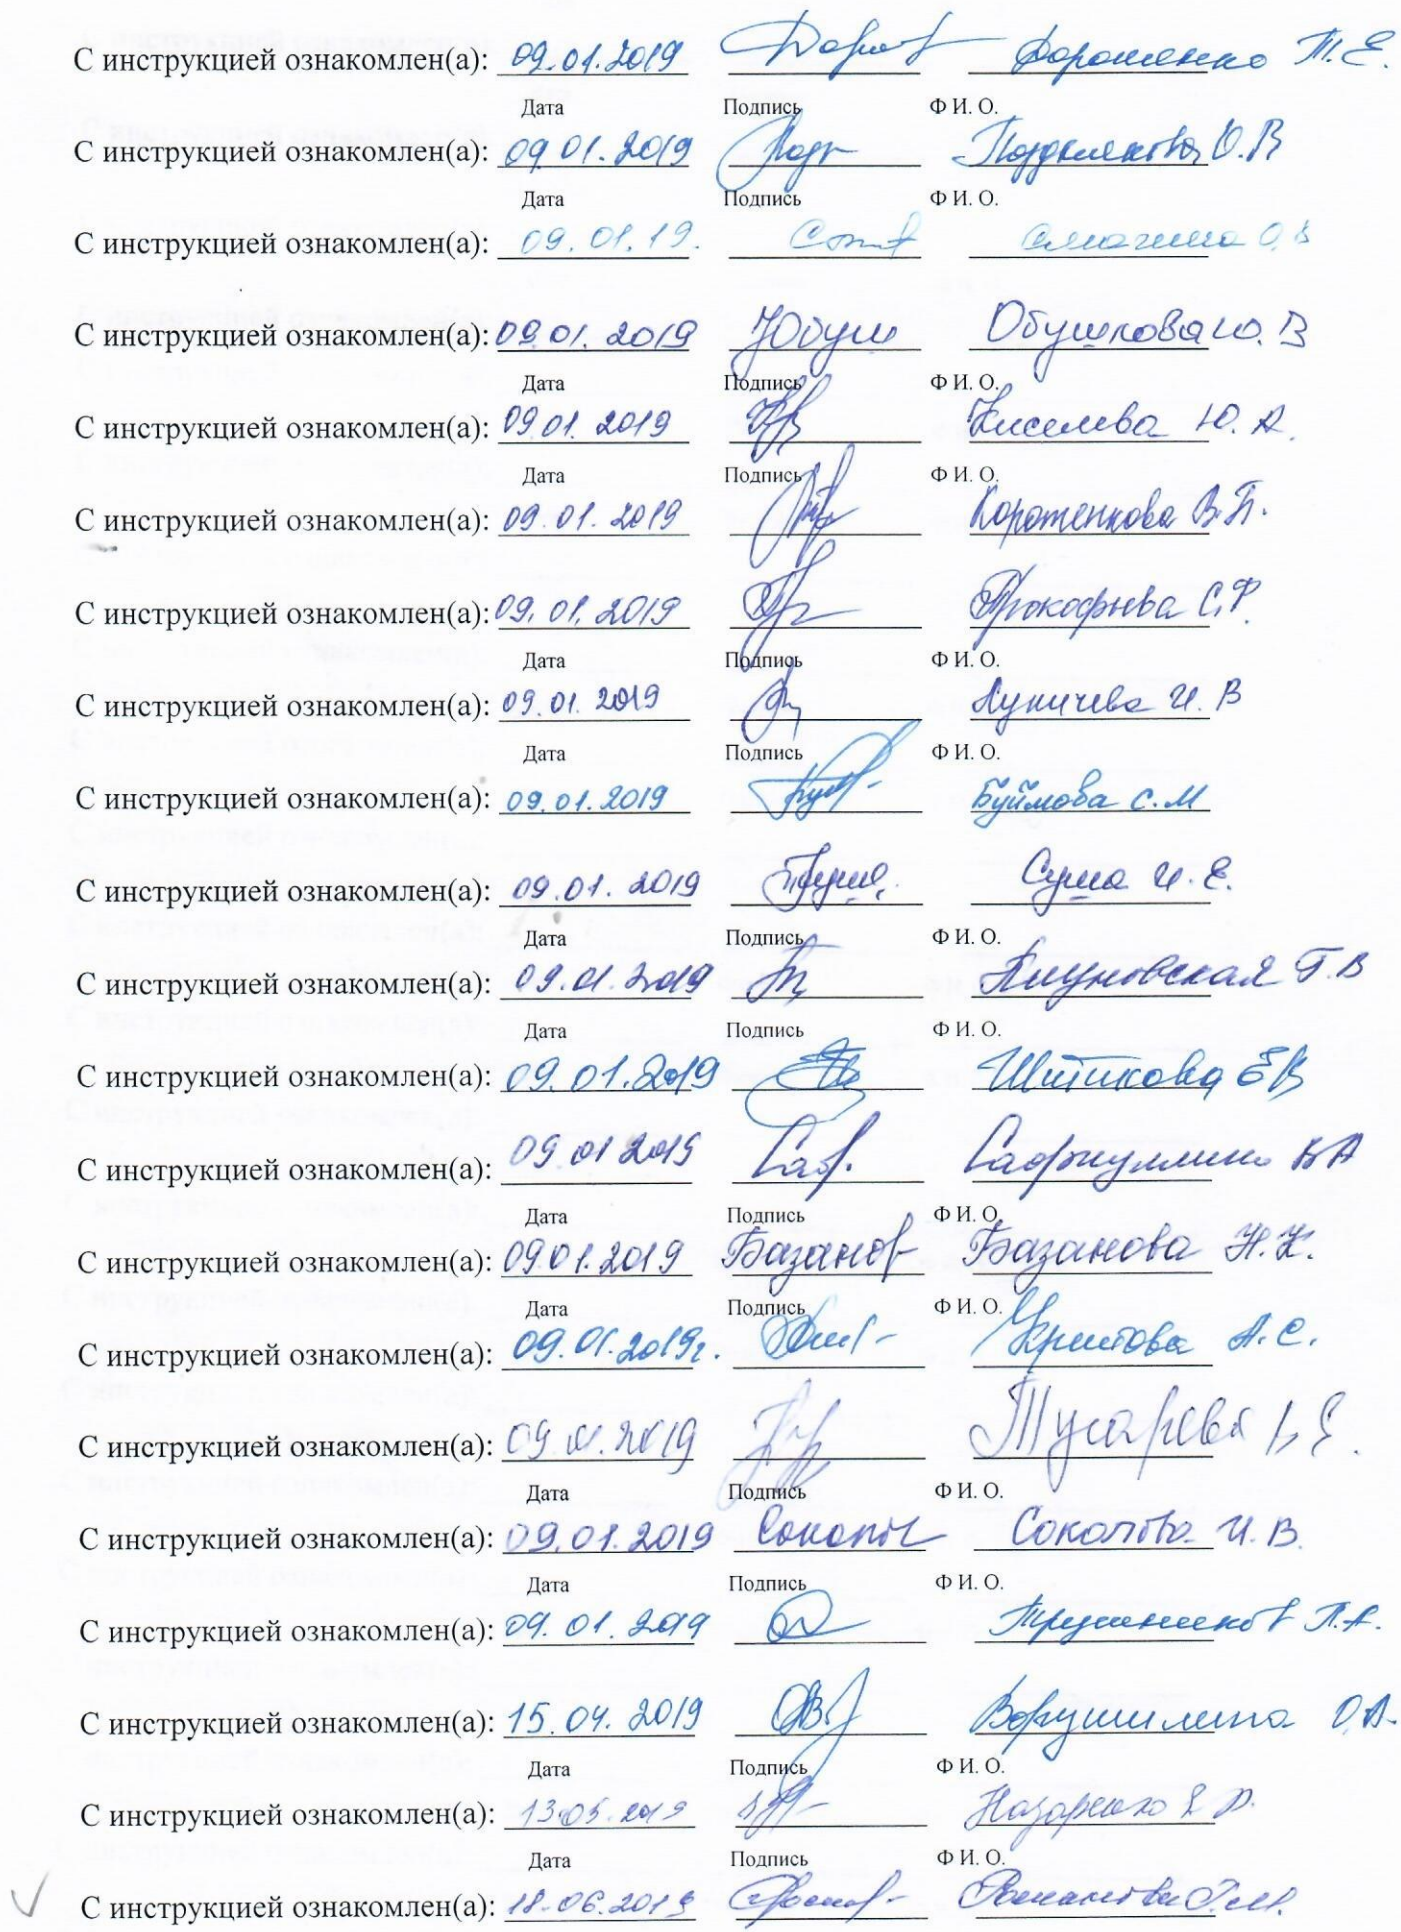 С инструкцией ознакомлен(а): 09.01.2019 Дорош Дорошенко Т.Е.
Дата Подпись Ф И. О.
С инструкцией ознакомлен(а): 09.01.2019 О.В
Дата Подпись Ф И. О.
С инструкцией ознакомлен(а): 09.01.19. Смагина О.В
С инструкцией ознакомлен(а): 09.01.2019 Юобуш Обушкова Ю.В
Дата Подпись Ф И. О.
С инструкцией ознакомлен(а): 09.01.2019 Киселева Ю.А.
Дата Подпись Ф И. О.
С инструкцией ознакомлен(а): 09.01.2019 Коротенкова В.П.
С инструкцией ознакомлен(а): 09.01.2019 Прокофьева С.Ф.
Дата Подпись Ф И. О.
С инструкцией ознакомлен(а): 09.01.2019 Куничева И.В
Дата Подпись Ф И. О.
С инструкцией ознакомлен(а): 09.01.2019 Буймова С.М
С инструкцией ознакомлен(а): 09.01.2019 Суша И.Е.
Дата Подпись Ф И. О.
С инструкцией ознакомлен(а): 09.01.2019 Т.В
Дата Подпись Ф И. О.
С инструкцией ознакомлен(а): 09.01.2019 Шитикова ЕВ
С инструкцией ознакомлен(а): 09.01 2019 Саф.
Дата Подпись Ф И. О.
С инструкцией ознакомлен(а): 09.01.2019 Базанов Базанова Н.К.
Дата Подпись Ф И. О.
С инструкцией ознакомлен(а): 09.01.2019г. А.С.
С инструкцией ознакомлен(а): 09.01.2019 Тугарева
Дата Подпись Ф И. О.
С инструкцией ознакомлен(а): 09.01.2019 Сокол Соколова И.В.
Дата Подпись Ф И. О.
С инструкцией ознакомлен(а): 09.01.2019 П.А.
С инструкцией ознакомлен(а): 15.04.2019 Ворушилина О.А.
Дата Подпись Ф И. О.
С инструкцией ознакомлен(а): 13.05.2019 Назаренко
Дата Подпись Ф И. О.
С инструкцией ознакомлен(а): 18.06.2019 Романова